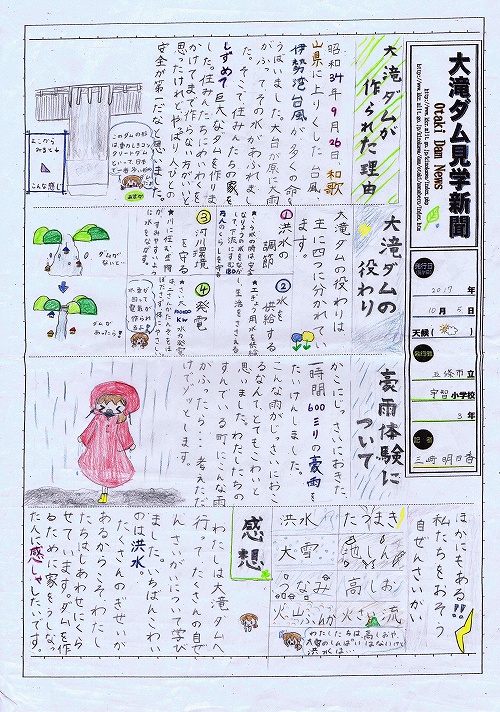 大滝ダム見学新聞
Otaki Dam News
発行日
2017年
10月5日
天候(
発行者
五條市立
宇智小学校
3年
記者
三﨑明日香
大滝ダムが
作られた理由
昭和34年9月26日、和歌
山県に上りくした台風
伊勢湾台風が多くの命を
うばいました。大台が原に大雨
がふって、その水があふれまし
た。そこで、住みんたちの家を
しずめて巨大なダムを作りま
した。住みんたちにめいわくを
かけてまで作らない方がいいと
思ったけれど、やっぱり人びとの
安全が第一だなと思いました。
このダムの形
は重力しきコン
クリートダム
といって、日本
で一番多いの
よこから
みると
こんな感じ
大滝ダムの
役わり
大滝ダムの役わりは
主に四つに分かれてい
ます。
①洪水の
調節
②水を
供給する
③河川環境
を守る
④発電
ダムが
ないと…
ダムが
あったら!
水音が
回って
電気が
作られ
るよ
豪雨体験に
ついて
かこにじっさいにおきた、
一時間600ミリの豪雨を
たいけんしました。
こんな雨がじっさいにおこ
るなんて、とてもこわいと
思いました。わたしたちの
すんでいる町にこんな雨
がふったら…考えただ
けでゾッとします。
ほかにもある!!
私たちをおそう
自ぜんさいがい
たつまき
洪水
地しん
大雪
高しお
つなみ
火さい流
火山ふんか
わたしたちは、高しおや、
大雪のしんぱいはないけど
洪水は…
感想
わたしは大滝ダムへ
行って、たくさんの自ぜ
んさいがいについて学び
ました。いちばんこわい
のは洪水。
たくさんのぎせいが
あるからこそ、わたし
たちはしあわせにくら
せています。ダムを作
るために家をうしなっ
た人に感しゃしたいです。